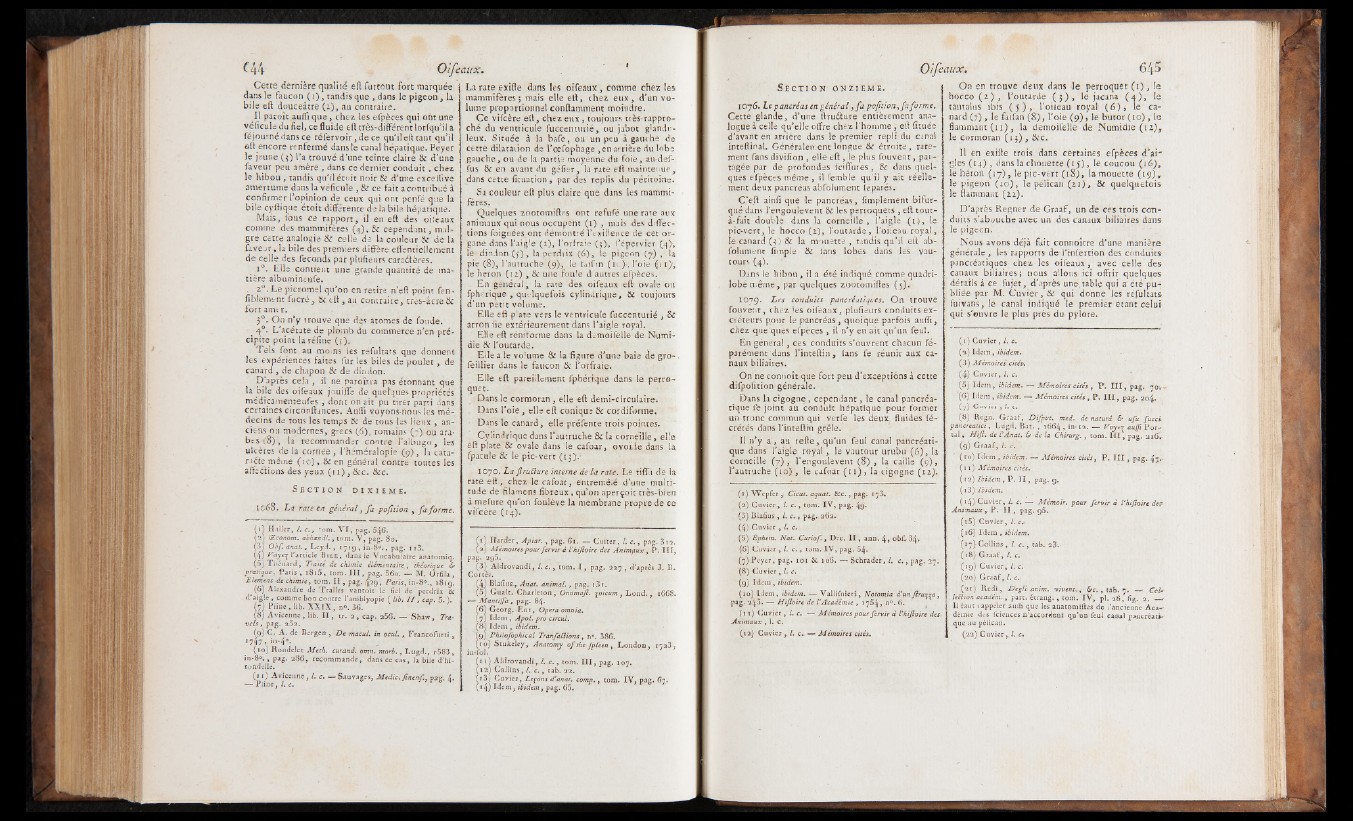 644
Oiseaux.
Cette dernière qualité est surtout fort marquée
dans le faucon (1), tandis que, dans le pigeon, la
bile est douceâtre (2), au contraire.
Il paroît aussi que, chez les espèces qui ont une
vésicule du fiel, ce fluide est très-différent lorsqu'il a
séjourné dans ce réservoir, de ce qu'il est tant qu'il
est encore renfermé dans le canal hépatique. Peyer
le jeune (3) l'a trouvé d'une teinte claire & d'une
saveur peu amère, dans ce dernier conduit, chez
le hibou, tandis qu'il étoit noir & d'une excessive
amertume dans la vésicule, & ce fait a contribué à
confirmer l'opinion de ceux qui ont pensé que la
bile cystique étoit différente de la bile hépatique.
Mais, sous ce rapport, il en est des oiseaux
comme des mammifères (4), & cependant, mal-
gré cette analogie & celle de la couleur & de la
saveur, la bile des premiers diffère essentiellement
de celle des seconds par plusieurs caractères.
1°. Elle contient une grande quantité de ma-
tière albumineuse.
2°. Le picromel qu'on en retire n'est point sen-
siblement sucré, & est, au contraire, très-âcre &
fort amer.
3°. On n'y trouve que des atomes de soude.
4°. L'acétate de plomb du commerce n'en pré-
cipite point la résine (5).
Tels sont au moins les résultats que donnent
les expériences faites sur les biles de poulet, de
canard, de chapon & de dindon.
D'après cela, il ne paroîtra pas étonnant que
la bile des oiseaux jouisse de quelques propriétés
médicamenteuses, dont on ait pu tirer parti dans
certaines circonstances. Aussi voyons-nous les mé-
decins de tous les temps & de tous les lieux, an-
ciens ou modernes, grecs (6), romains (7) ou ara-
bes (8), la recommander contre l'albugo, les
ulcères de la cornée, l'héméralopie (9), la cata-
racte même (10), & en général contre toutes les
affections des yeux (11), &c. &c.
SECTION DIXIEME.
1068. La rate en général, sa position, sa forme.
(1) Haller, l. c., tom. VI, pag. 546.
(2) Œconom. abhandl., tom. V, pag. 80.
(3) Obs. anat., Leyd., 1719, in-8°., pag. 113.
(4) Voyez l'article BILE, dans le Vocabulaire anatomiq.
(5) Thénard, Traité de chimie élémentaire, théorique &
pratique, Paris, 1815, tom. III, pag. 560. — M. Orfila,
Elémens de chimie, tom. II, pag. 429, Paris, in-8°., 1819.
(6) Alexandre de Tralles vantoit le fiel de perdrix &
d'aigle, comme bon contre l'amblyopie (lib. II, cap. 5.).
(7) Pline, lib. XXIX, n°. 36.
(8) Avicenne, lib. II, tr. 2, cap. 256. — Shaw, Tra-
vels, pag. 252.
(9) C. A. de Bergen, De macul. in ocul., Francofurti,
1747, in-4°.
(10) Rondelet Meth. curand. omn. morb., Lugd., 1583,
in-8°., pag. 286, recommande, dans ce cas, la bile d'hi-
rondelle.
(11) Avicenne, l. c. — Sauvages, Medic. sinens., pag. 4.
— Pline, l. c.
La rate existe dans les oiseaux, comme chez les
mammifères; mais elle est, chez eux, d'un vo-
lume proportionnel constamment moindre.
Ce viscère est, chez eux, toujours très-rappro-
ché du ventricule succenturié, ou jabot glandu-
leux. Située à la base, ou un peu à gauche de
cette dilatation de l'œsophage, en arrière du lobe
gauche, ou de la partie moyenne du foie, au-des-
sus & en avant du gésier, la rate est maintenue,
dans cette situation, par des replis du péritoine.
Sa couleur est plus claire que dans les mammi-
fères.
Quelques zootomistes ont refusé une rate aux
animaux qui nous occupent (1), mais des dissec-
tions soignées ont démontré l'existence de cet or-
gane dans l'aigle (2), l'orfraie (3), l'épervier (4),
le dindon (5), la perdrix (6), le pigeon (7), la
pie (8), l'autruche (9), le faisan (10), l'oie (11),
le héron (12), & une foule d'autres espèces.
En général, la rate des oiseaux est ovale ou
sphérique, quelquefois cylindrique, & toujours
d'un petit volume.
Elle est plate vers le ventricule succenturié, &
arrondie extérieurement dans l'aigle royal.
Elle est réniforme dans la demoiselle de Numi-
die & l'outarde.
Elle a le volume & la figure d'une baie de gro-
seillier dans le faucon & l'orfraie.
Elle est pareillement sphérique dans le perro-
quet.
Dans le cormoran, elle est demi-circulaire.
Dans l'oie, elle est conique & cordiforme.
Dans le canard, elle présente trois pointes.
Cylindrique dans l'autruche & la corneille, elle
est plate & ovale dans le casoar, ovoïde dans la
spatule & le pic-vert (13).
1070. La structure interne de la rate. Le tissu de la
rate est, chez le casoar, entremêlé d'une multi-
tude de filamens fibreux, qu'on aperçoit très-bien
à mesure qu'on soulève la membrane propre de ce
viscère (14).
(1) Harder, Apiar., pag. 61. — Cutter, l. c., pag. 322.
(2) Mémoires pour servir à l'histoire des Animaux, P. III,
pag. 296.
(3) Aldrovandi, l. c., tom. I, pag. 227, d'après J. B.
Cortès.
(4) Blasius, Anat. animal., pag. 131.
(5) Gualt. Charleton, Onomast. zoicum, Lond., 1668.
— Mantissa, pag. 84.
(6) Georg. Ent, Opera omnia.
(7) Idem, Apol. pro circul.
(8) Idem, ibidem.
(9) Philosophical Transactions, n°. 386.
(10) Stukeley, Anatomy of the spleen, London, 1723,
in-fol.
(11) Aldrovandi, l. c., tom. III, pag. 107.
(12) Collins, l. c., tab. 22.
(13) Cuvier, Leçons d'anat. comp., tom. IV, pag. 67.
(14) Idem, ibidem, pag. 65.
Oiseaux.
645
SECTION ONZIEME.
1076. Le pancréas en général, sa position, sa forme.
Cette glande, d'une structure entièrement ana-
logue à celle qu'elle offre chez l'homme, est située
d'avant en arrière dans le premier repli du canal
intestinal. Généralement longue & étroite, rare-
ment sans division, elle est, le plus souvent, par-
tagée par de profondes scissures, & dans quel-
ques espèces même, il semble qu'il y ait réelle-
ment deux pancréas absolument séparés.
C'est ainsi que le pancréas, simplement bifur-
qué dans l'engoulevent & les perroquets, est tout-
à-fait double dans la corneille, l'aigle (1), le
pic-vert, le hocco (2), l'outarde, l'oiseau royal,
le canard (3) & la mouette, tandis qu'il est ab-
solument simple & sans lobes dans les vau-
tours (4).
Dans le hibou, il a été indiqué comme quadri-
lobé même, par quelques zootomistes (5).
1079. Les conduits pancréatiques. On trouve
souvent, chez les oiseaux, plusieurs conduits ex-
créteurs pour le pancréas, quoique parfois aussi,
chez quelques espèces, il n'y en ait qu'un seul.
En général, ces conduits s'ouvrent chacun sé-
parément dans l'intestin, sans se réunir aux ca-
naux biliaires.
On ne connoît que fort peu d'exceptions à cette
disposition générale.
Dans la cigogne, cependant, le canal pancréa-
tique se joint au conduit hépatique pour former
un tronc commun qui verse les deux fluides sé-
crétés dans l'intestin grêle.
Il n'y a, au reste, qu'un seul canal pancréati-
que dans l'aigle royal, le vautour urubu (6), la
corneille (7), l'engoulevent (8), la caille (9),
l'autruche (10), le casoar (11), la cigogne (12).
(1) Wepfer, Cicut. aquat. &c., pag. 173.
(2) Cuvier, l. c., tom. IV, pag. 49.
(3) Blasius, l. c., pag. 262.
(4) Cuvier, l. c.
(5) Ephem. Nat. Curios., Dec. II, ann. 4, obs. 34.
(6) Cuvier, l. c., tom. IV, pag. 54.
(7) Peyer, pag. 101 & 186. — Schrader, l. c., pag. 27.
(8) Cuvier, l. c.
(9) Idem, ibidem.
(10) Idem, ibidem. — Vallisnieri, Notomia d'un struzzo,
pag. 245. — Histoire de l'Académie, 1754, n°. 6.
(11) Cuvier, l. c. — Mémoires pour servir à l'histoire des
Animaux, l. c.
(12) Cuvier, l. c. — Mémoires cités.
On en trouve deux dans le perroquet (1), le
hocco (2), l'outarde (3), le jacana (4), le
tantalus ibis (5), l'oiseau royal (6), le ca-
nard (7), le faisan (8), l'oie (9), le butor (10), le
flammant (11), la demoiselle de Numidie (12),
le cormoran (13), &c.
Il en existe trois dans certaines espèces d'ai-
gles (14), dans la chouette (15), le coucou (16),
le héron (17), le pic-vert (18), la mouette (19),
le pigeon (20), le pélican (21), & quelquefois
le flammant (22).
D'après Regner de Graaf, un de ces trois con-
duits s'abouche avec un des canaux biliaires dans
le pigeon.
Nous avons déjà fait connoître d'une manière
générale, les rapports de l'insertion des conduits
pancréatiques chez les oiseaux, avec celle des
canaux biliaires; nous allons ici offrir quelques
détails à ce sujet, d'après une table qui a été pu-
bliée par M. Cuvier, & qui donne les résultats
suivans, le canal indiqué le premier étant celui
qui s'ouvre le plus près du pylore.
(1) Cuvier, l. c.
(2) Idem, ibidem.
(3) Mémoires cités.
(4) Cuvier, l. c.
(5) Idem, ibidem. — Mémoires cités, P. III, pag. 70.
(6) Idem, ibidem. — Mémoires cités, P. III, pag. 204.
(7) Cuvier, l. c.
(8) Regn. Graaf, Disput. med. de naturâ & usu succi
pancreatici, Lugd. Bat., 1664, in-12. — Voyez aussi Por-
tal, Hist. de l'Anat. & de la Chirurg., tom. III, pag. 226.
(9) Graaf, l. c.
(10) Idem, ibidem. — Mémoires cités, P. III, pag. 43.
(11) Mémoires cités.
(12) Ibidem, P. II, pag. 9.
(13) Ibidem.
(14) Cuvier, l. c. — Mémoir. pour servir à l'histoire des
Animaux, P. II, pag. 96.
(15) Cuvier, l. c.
(16) Idem, ibidem.
(17) Collins, l. c., tab. 23.
(18) Graaf, l. c.
(19) Cuvier, l. c.
(20) Graaf, l. c.
(21) Redi, Degli anim. vivent., &c., tab. 7. — Col-
lection académ., part. étrang., tom. IV, pl. 28, fig. 2. —
Il faut rappeler aussi que les anatomistes de l'ancienne Aca-
démie des sciences n'accordent qu'un seul canal pancréati-
que au pélican.
(22) Cuvier, l. c.